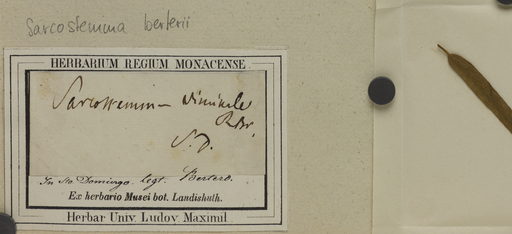 Sarcostemma berterii
HERBARIUM REGIUM MONACENSE
Sarcostemma viminale
R.Br.
S. D.
In Sto. Domingo. legt. Bertero.
Ex herbario Musei bot. Landishuth.
Herbar. Univ. Ludov. Maximil.